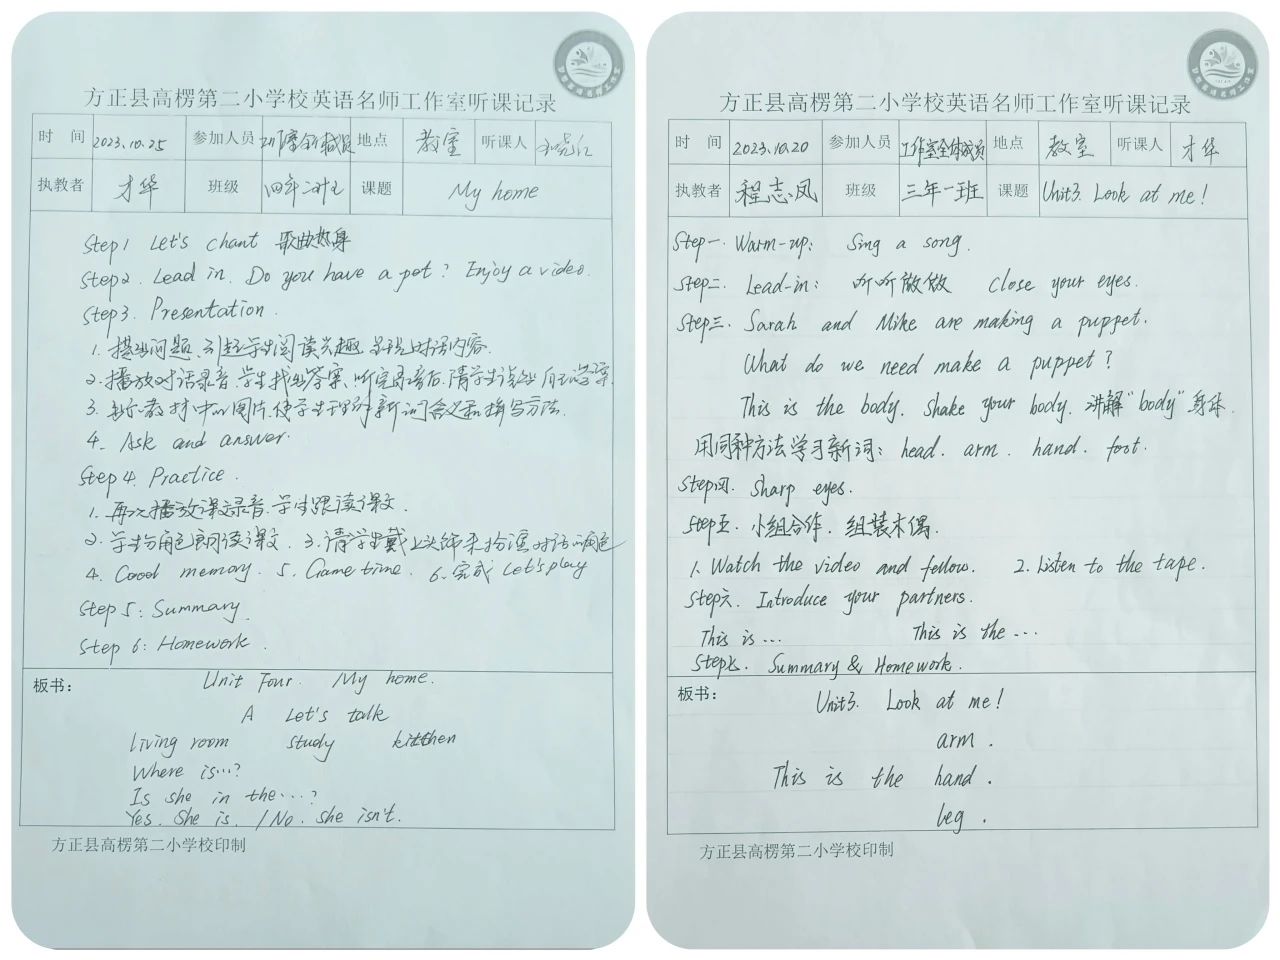 方正县高楞第二小学校英语名师工作室听课记录
时 间 2023.10.25 参加人员 地点 教室 听课人
执教者 才华 班级 课题 My home
Step1 Let's chant 歌曲热身
Step2. Lead in. Do you have a pet? Enjoy a video.
Step3. Presentation.
1. 提出问题、引起学生阅读兴趣.呈现对话内容.
2. 播放对话录音.学生找出答案、听完录音后.请学生说出
3. 教材中的图片.使学生理解新词含义和拼写方法.
4. Ask and answer.
Step 4. Practice.
1. 再次播放课文录音.学生跟读课文.
2. 学生分角色朗读课文. 3. 请学生戴上头饰来扮演对话的角色
4. Good memory. 5. Game time. 6. 完成 Let's play
Step 5: Summary.
Step 6: Homework.
板书:
Unit Four. My home.
A Let's talk
living room study kitchen
Where is…?
Is she in the…?
Yes. She is. / No. she isn't.
方正县高楞第二小学校印制
方正县高楞第二小学校英语名师工作室听课记录
时 间 2023.10.20 参加人员 工作室全体成员 地点 教室 听课人 才华
执教者 程志凤 班级 三年一班 课题 Unit3. Look at me!
Step一. Warm-up: Sing a song.
Step二. Lead-in: 听听做做 Close your eyes.
Step三. Sarah and Mike are making a puppet.
What do we need make a puppet?
This is the body. Shake your body. 讲解"body"身体.
用同种方法学习新词: head. arm. hand. foot.
Step四. Sharp eyes.
Step五. 小组合作. 组装木偶.
1. Watch the video and fellow. 2. Listen to the tape.
Step六. Introduce your partners.
This is … This is the …
Step七. Summary & Homework.
板书:
Unit3. Look at me!
arm.
This is the hand.
leg.
方正县高楞第二小学校印制